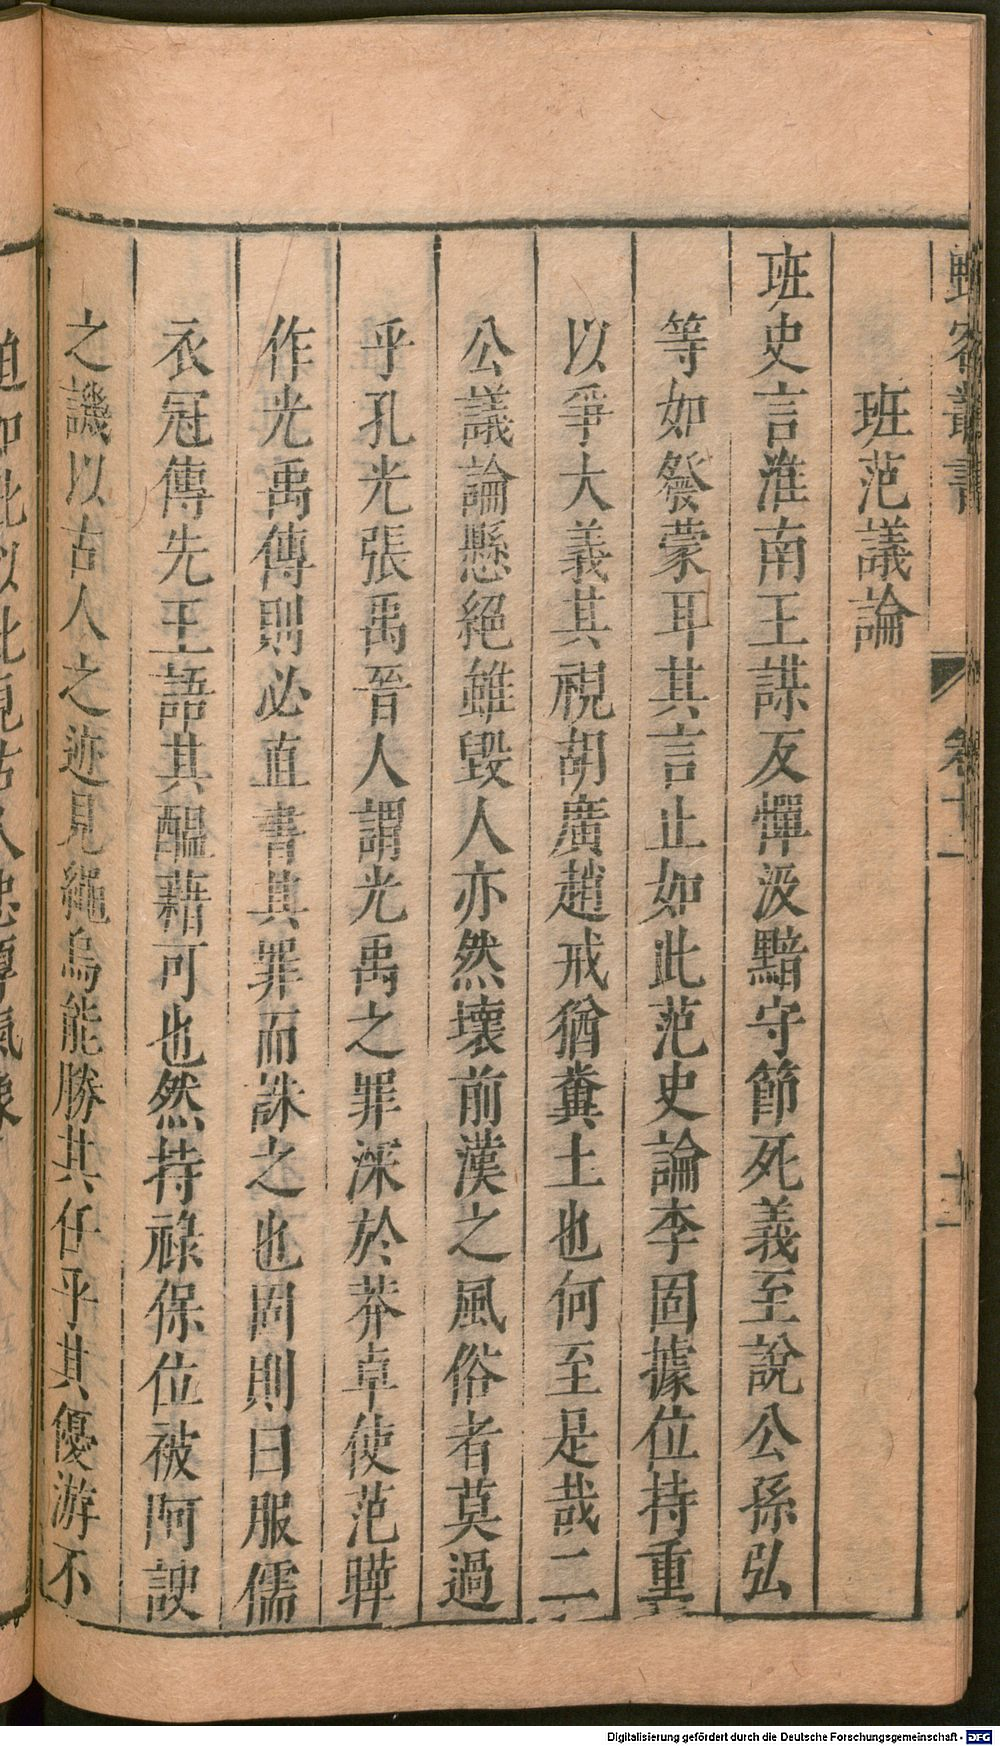 叢書
卷十一
十三
班范議論
班史言淮南王謀反憚汲黯守節死義至說公孫弘
等如發蒙耳其言止如此范史論李固據位持重
以爭大義其視胡廣趙戒猶糞土也何至是哉二
公議論懸絕雖毀人亦然壞前漢之風俗者莫過
乎孔光張禹晉人謂光禹之罪深於莽卓使范曄
作光禹傳則必直書其罪而誅之也固則曰服儒
衣冠傳先王語其醞藉可也然持祿保位被阿諛
之譏以古人之迹見繩烏能勝其任乎其優游不
Digitalisierung gefördert durch die Deutsche Forschungsgemeinschaft - DFG